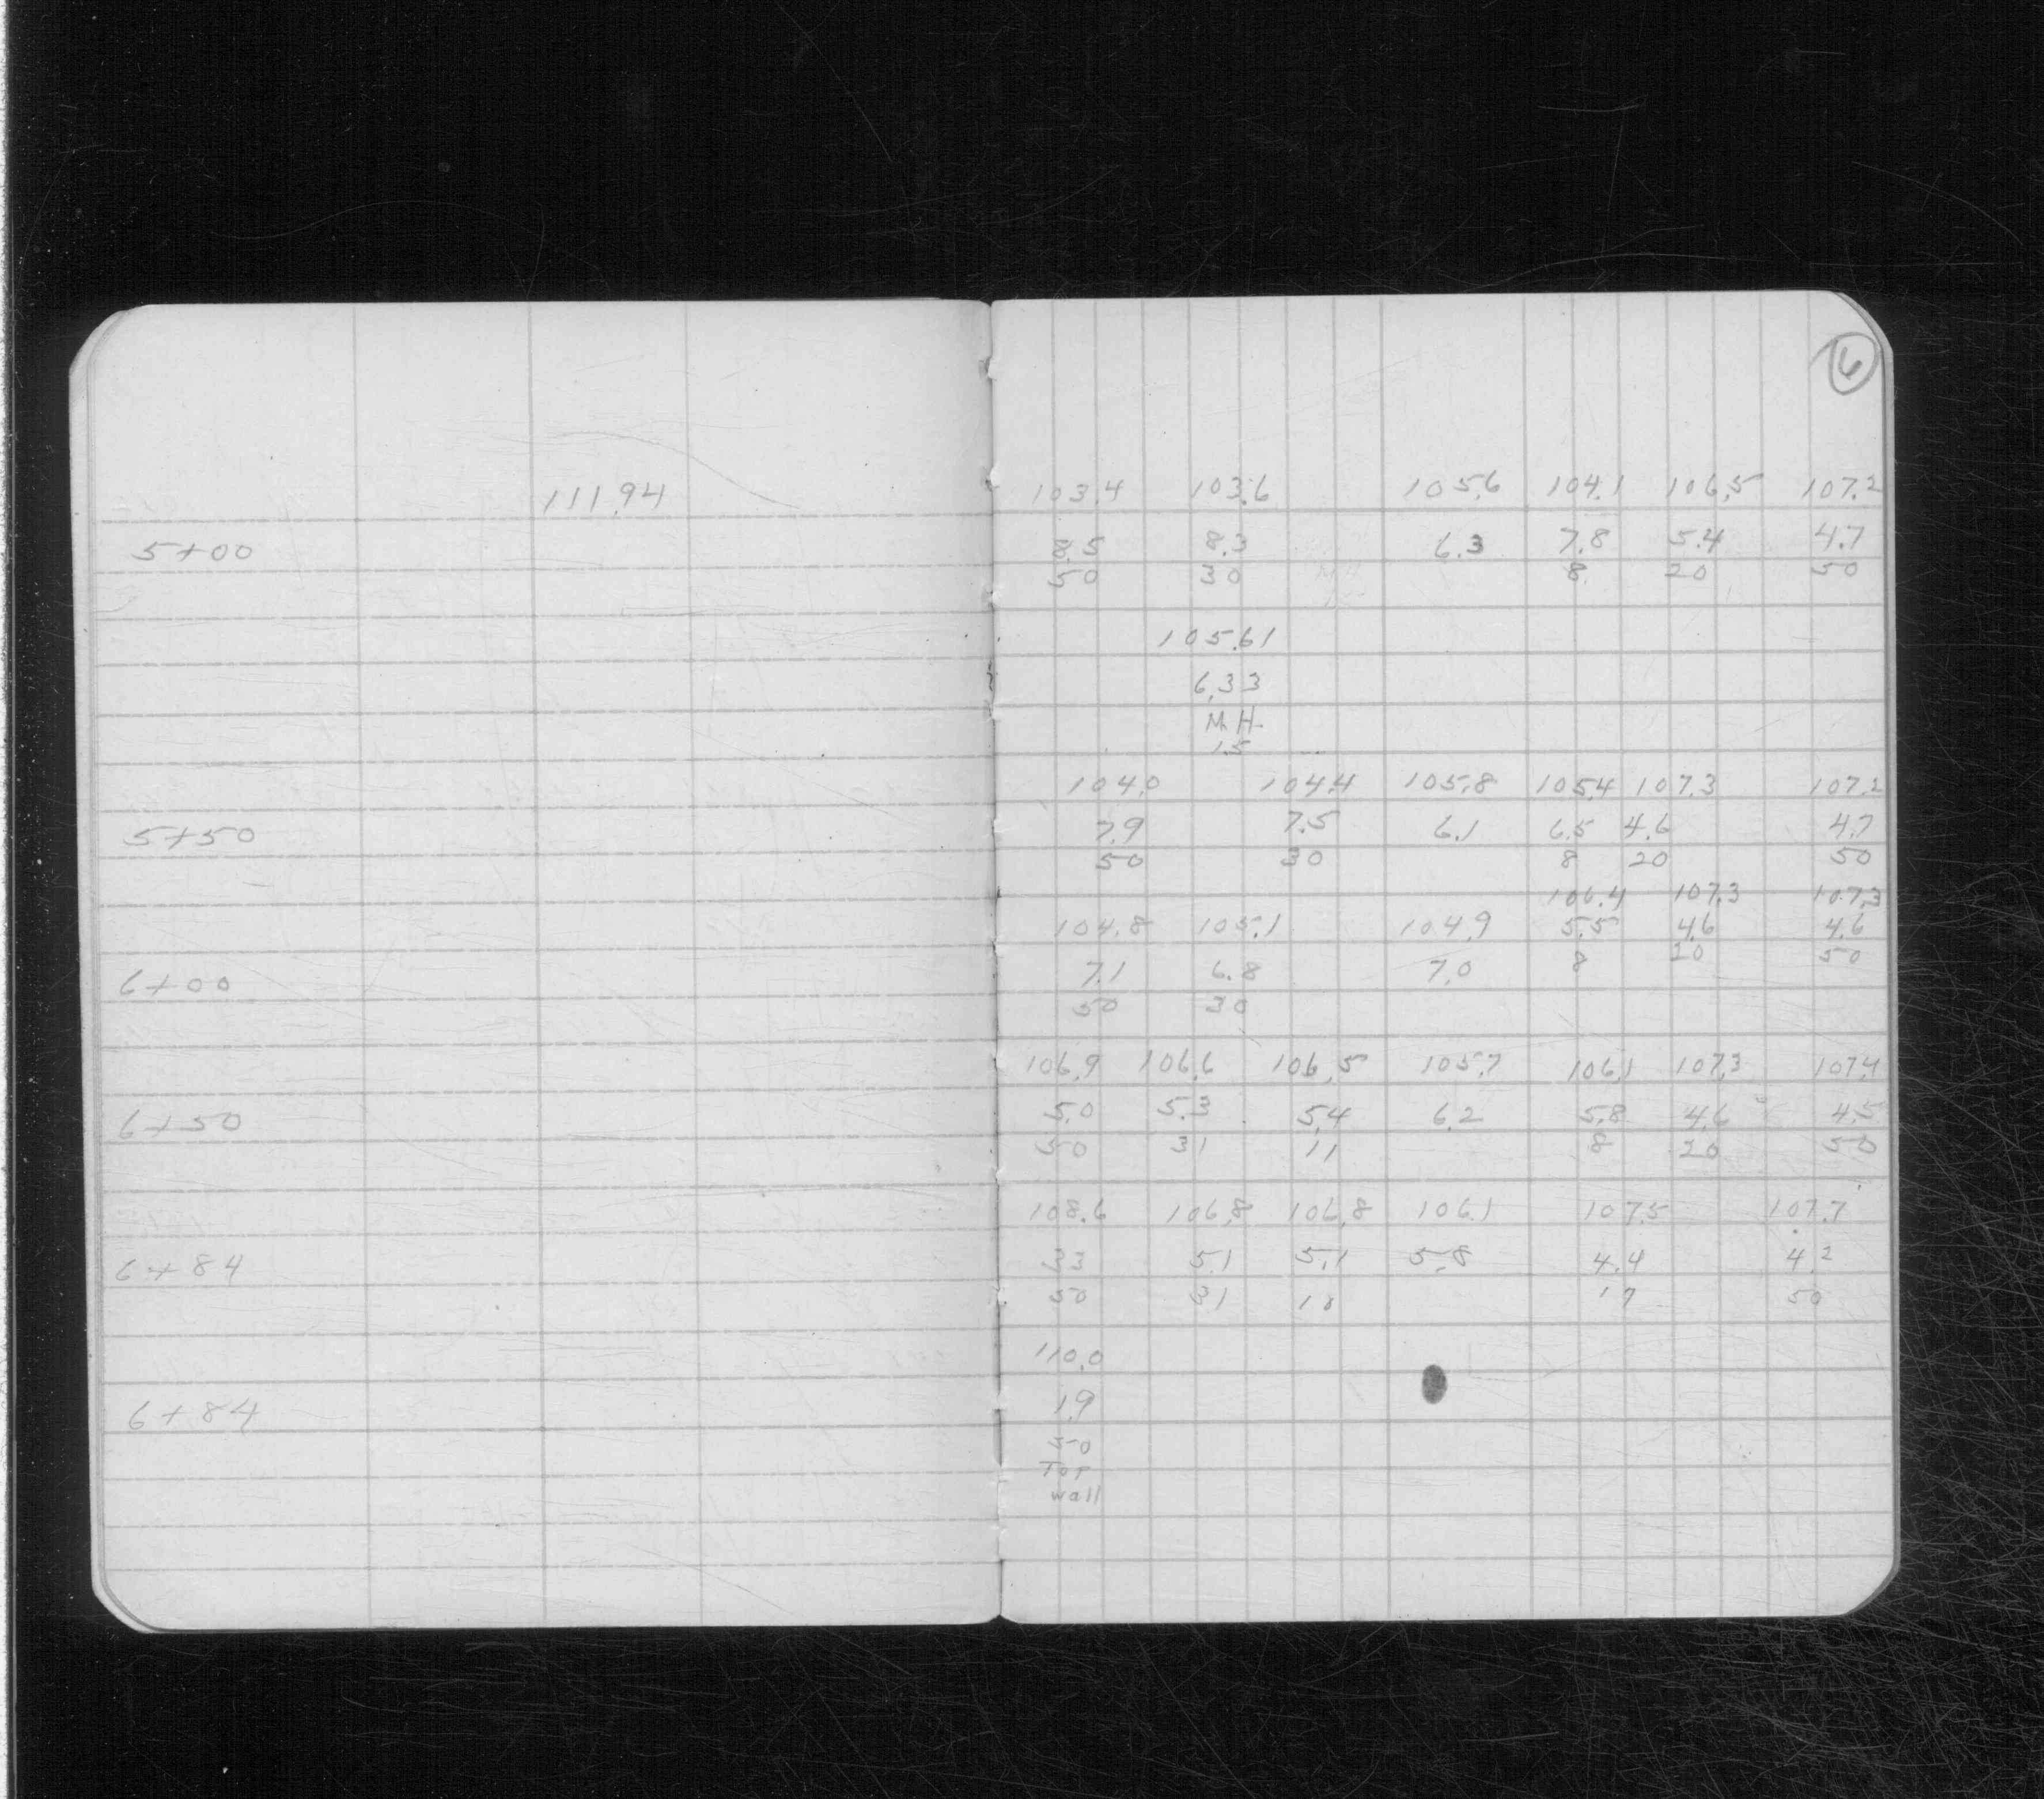 6
111.94 103.4 103.6 105.6 104.1 106.5 107.2
5+00 8.5 8.3 6.3 7.8 5.4 4.7
50 30 8 20 50
105.61
6.33
M.H.
15
104.0 104.4 105.8 105.4 107.3 107.2
5+50 7.9 7.5 6.1 6.5 4.6 4.7
50 30 8 20 50
106.4 107.3 107.3
104.8 105.1 104.9 5.5 4.6 4.6
6+00 7.1 6.8 7.0 8 20 50
50 30
106.9 106.6 106.5 105.7 106.1 107.3 107.4
6+50 5.0 5.3 5.4 6.2 5.8 4.6 4.5
50 31 11 8 20 50
108.6 106.8 106.8 106.1 107.5 107.7
6+84 3.3 5.1 5.1 5.8 4.4 4.2
50 31 17 50
110.0
6+84 1.9
50
Top
wall